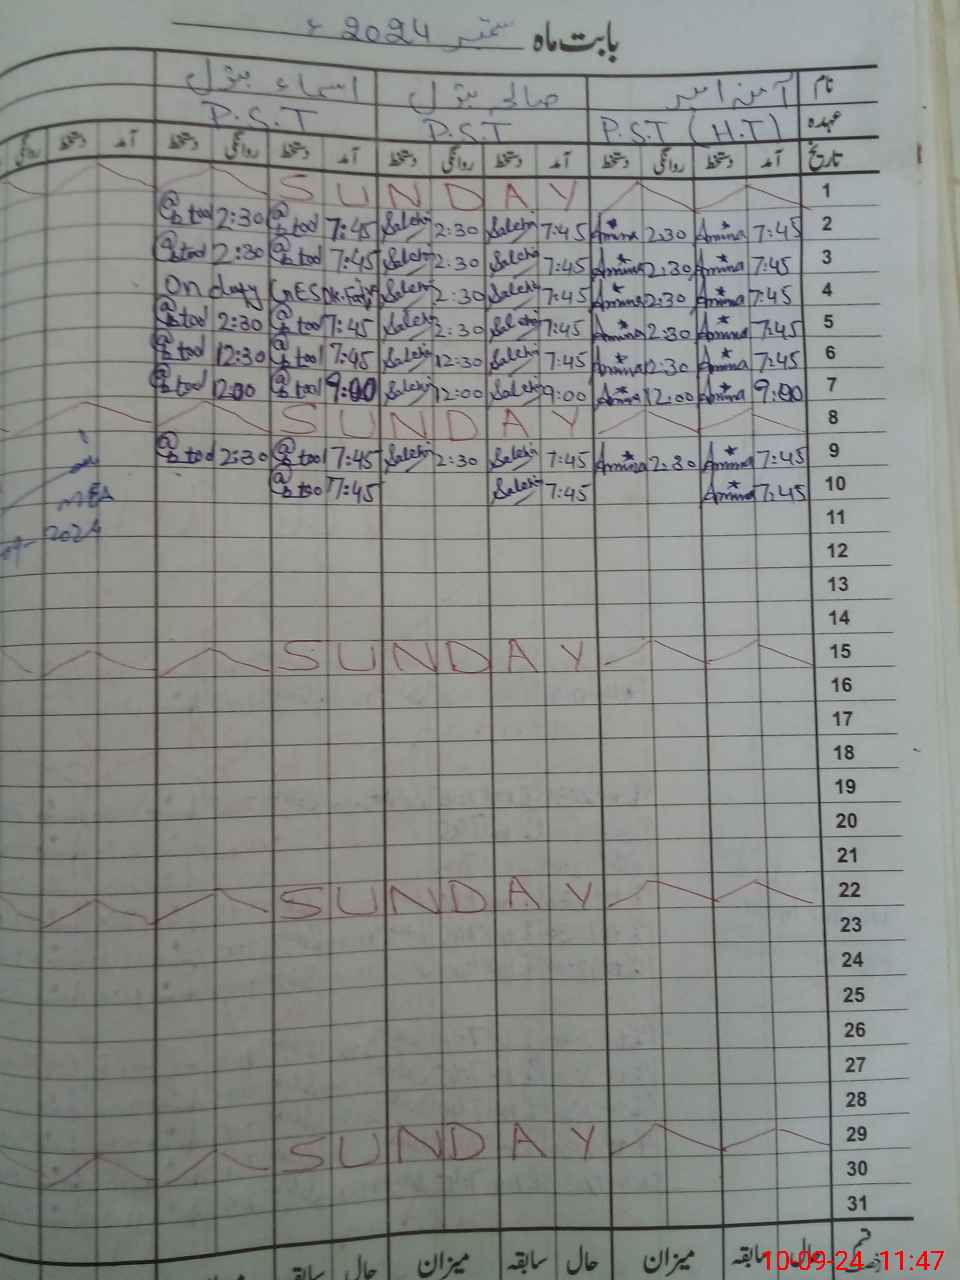 بابت ماہ ستمبر 2024ء
نام آمنہ امیر صالحہ بتول اسماء بتول
عہدہ P.S.T (H.T) P.S.T P.S.T
تاریخ آمد دستخط روانگی دستخط آمد دستخط روانگی دستخط آمد دستخط روانگی دستخط آمد دستخط روانگی
1 SUNDAY
2 7:45 Amina 2:30 Amina 7:45 Saleha 2:30 Saleha 7:45 2:30
3 7:45 Amina 2:30 Amina 7:45 Saleha 2:30 Saleha 7:45 2:30
4 7:45 Amina 2:30 Amina 7:45 Saleha 2:30 Saleha On duty
5 7:45 Amina 2:30 Amina 7:45 Saleha 2:30 Saleha 7:45 2:30
6 7:45 Amina 12:30 Amina 7:45 Saleha 12:30 Saleha 7:45 12:30
7 9:00 Amina 12:00 Amina 9:00 Saleha 12:00 Saleha 9:00 12:00
8 SUNDAY
9 7:45 Amina 2:30 Amina 7:45 Saleha 2:30 Saleha 7:45 2:30
10 7:45 Amina 7:45 Saleha 7:45
MEA
11
2024
12
13
14
15 SUNDAY
16
17
18
19
20
21
22 SUNDAY
23
24
25
26
27
28
29 SUNDAY
30
31
حال سابقہ میزان حال سابقہ میزان حال سابقہ میزان
10-09-24 11:47